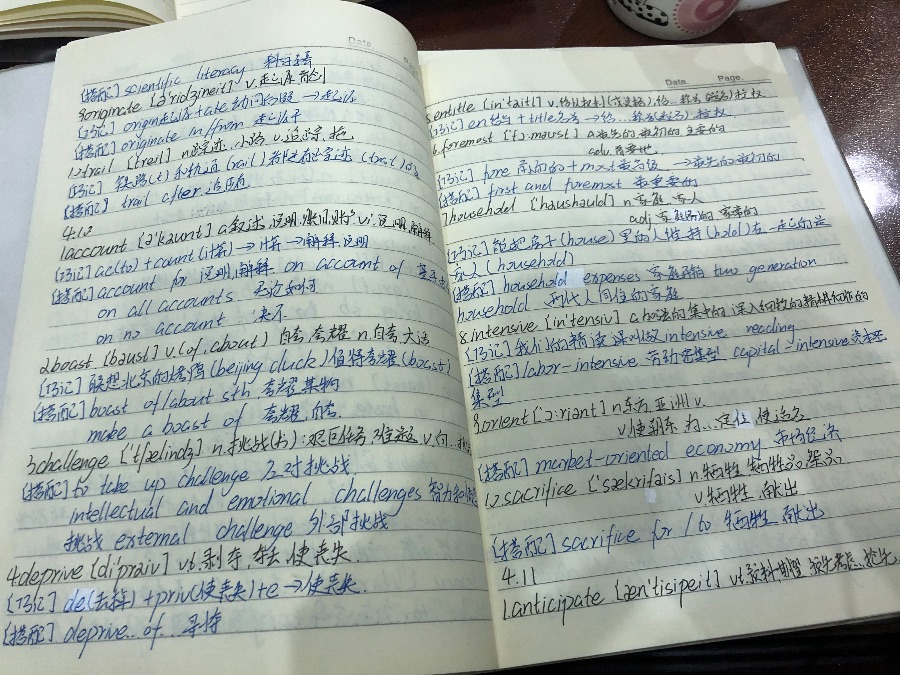 Date
[搭配] scientific literacy 科学素养
9originate [ə'ridʒineit] v.起源 开创
[巧记] origin起源+ate动词后缀→起源
[搭配] originate in/from 起源于
10trail [treil] n.踪迹,小路 v.追踪,拖
[巧记] 铁路(t)和轨道(rail)
[搭配] trail after 追随
4.12
1account [ə'kaunt] n.叙述,说明,账目 vi.说明,解释
[巧记] ac(to)+count(计算)→计算→解释,说明
[搭配] account for 说明,解释 on account of
on all accounts 无论如何
on no account 决不
2boast [bəust] v.(of,about) 自夸,夸耀 n.自夸,大话
[巧记] 联想北京的烤鸭(beijing duck)值得夸耀(boast)
[搭配] boast of/about sth 夸耀某物
make a boast of 夸耀,自夸
3challenge ['tʃælindʒ] n.挑战(书):艰巨任务 难题 v.向
[搭配] to take up challenge 应对挑战
intellectual and emotional challenges
挑战 external challenge 外部挑战
4deprive [di'praiv] vt.剥夺,使丧失
[巧记] de(去掉)+priv(使丧失)+e→使丧失
[搭配] deprive...of...
Date. Page.
5entitle [in'taitl] v.
[巧记] en给与+title
6foremost ['fɔ:məust] a.最先的 最初的 主要的
adv.首要地
[巧记] fore 前面的+most最高级→最先的最初的
[搭配] first and foremost 最重要的
7household ['haushəuld] n.家庭 家人
adj.家庭的 家常的
[巧记] 能把房子(house)里的人维持(hold)在一起的是
家人(household)
[搭配] household expenses 家庭开销 two generation
household 两代人同住的家庭
8intensive [in'tensiv] a.加强的 集中的 深入细致的 精耕细作的
[巧记] 我们的精读课叫做intensive reading
[搭配] labor-intensive 劳动密集型 capital-intensive 资本密
集型
9orient ['ɔ:riənt] n.东方,亚洲 v.
v.使朝东 将...定位 使适应
[搭配] market-oriented economy 市场经济
10sacrifice ['sækrifais] n.牺牲 牺牲品,祭品
v.牺牲 献出
[搭配] sacrifice for/to 牺牲 献出
4.11
1anticipate [æn'tisipeit] vt.预料 期望 预先考虑,抢先